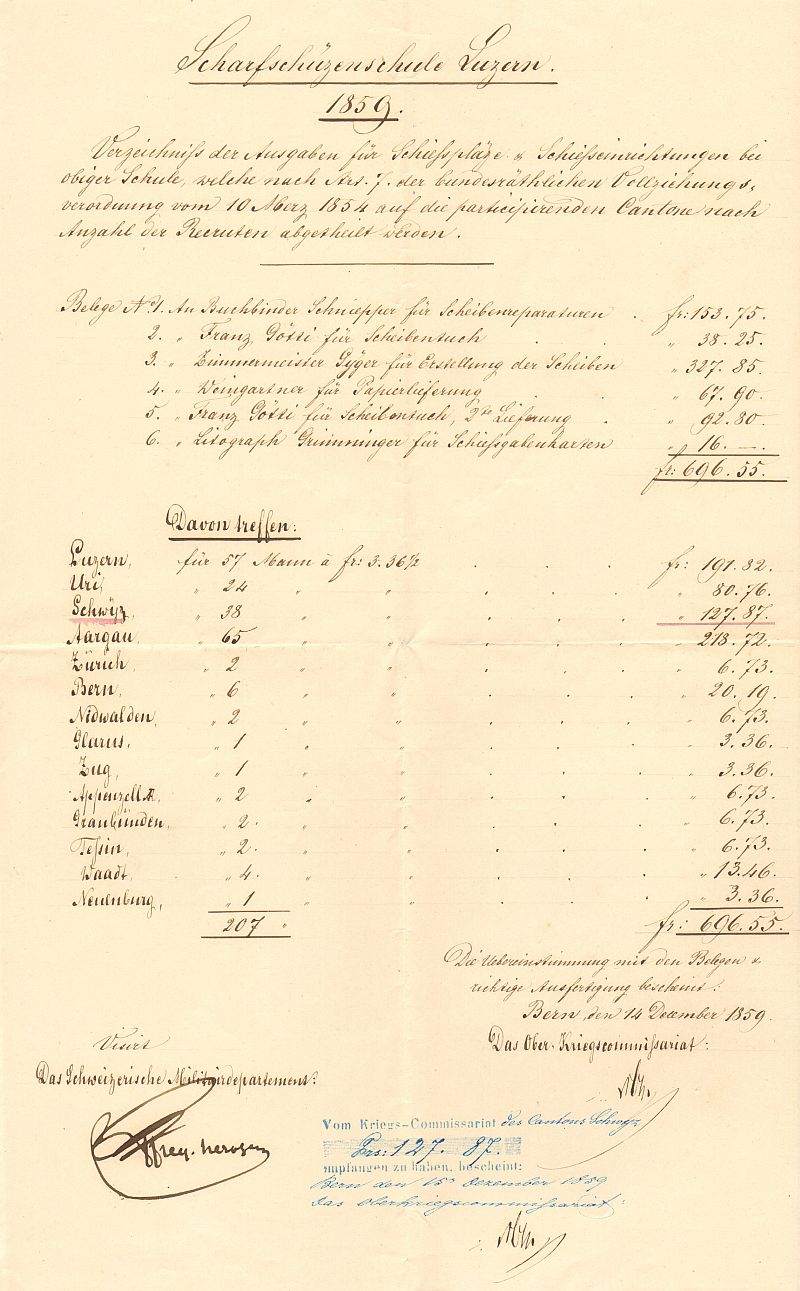 Scharfschüzenschule Luzern.
1859.
Verzeichniss der Ausgaben für Schiessplaze & Schiesseinrichtungen bei
obiger Schule, welche nach Art. 7. der bundesräthlichen Vollziehungs-
verordnung vom 10 Merz 1854 auf die participirenden Cantone nach
Anzahl der Recruten abgetheilt werden.
Belege No. 1. An Buchbinder Schniepper für Scheibenreparaturen . fr: 153. 75.
2. " Franz Götti für Scheibentuch . . " 38. 25.
3. " Zimmermeister Gÿger für Erstellung der Scheiben " 327. 85.
4. " Weingartner für Papierlieferung . . " 67. 90.
5. " Franz Götti für Scheibentuch, 2te Lieferung . " 92. 80.
6. " Litograph Grimminger für Schiessgabenkarten " 16. —.
fr: 696. 55.
Davon treffen:
Luzern, für 57 Mann à fr: 3. 36½ . . . fr: 191. 82.
Uri, " 24 " " . . . " 80. 76.
Schwÿz, " 38 " " . . . " 127. 87.
Aargau, " 65 " " . . . " 218. 72.
Zürich, " 2 " " . . . " 6. 73.
Bern, " 6 " " . . . " 20. 19.
Nidwalden, " 2 " " . . . " 6. 73.
Glarus, " 1 " " . . . " 3. 36.
Zug, " 1 " " . . . " 3. 36.
Appenzell " 2 " " . . . " 6. 73.
Graubünden, " 2. " " . . . " 6. 73.
Tessin, " 2. " " . . . " 6. 73.
Waadt, " 4. " " . . . " 13. 46.
Neuenburg, " 1 " " . . . " 3. 36.
207 " fr: 696. 55.
Die Uebereinstimmung mit den Belegen &
richtige Ausfertigung bescheint:
Bern, den 14 December 1859.
Das Ober-Kriegscommissariat:
Visirt
Das Schweizerische Militairdepartement:
Vom Kriegs-Commissariat des Cantons Schwyz
Frs: 127. 87.
empfangen zu haben, bescheint:
Bern den 15n Dezember 1859
das Oberkriegscommissariat: